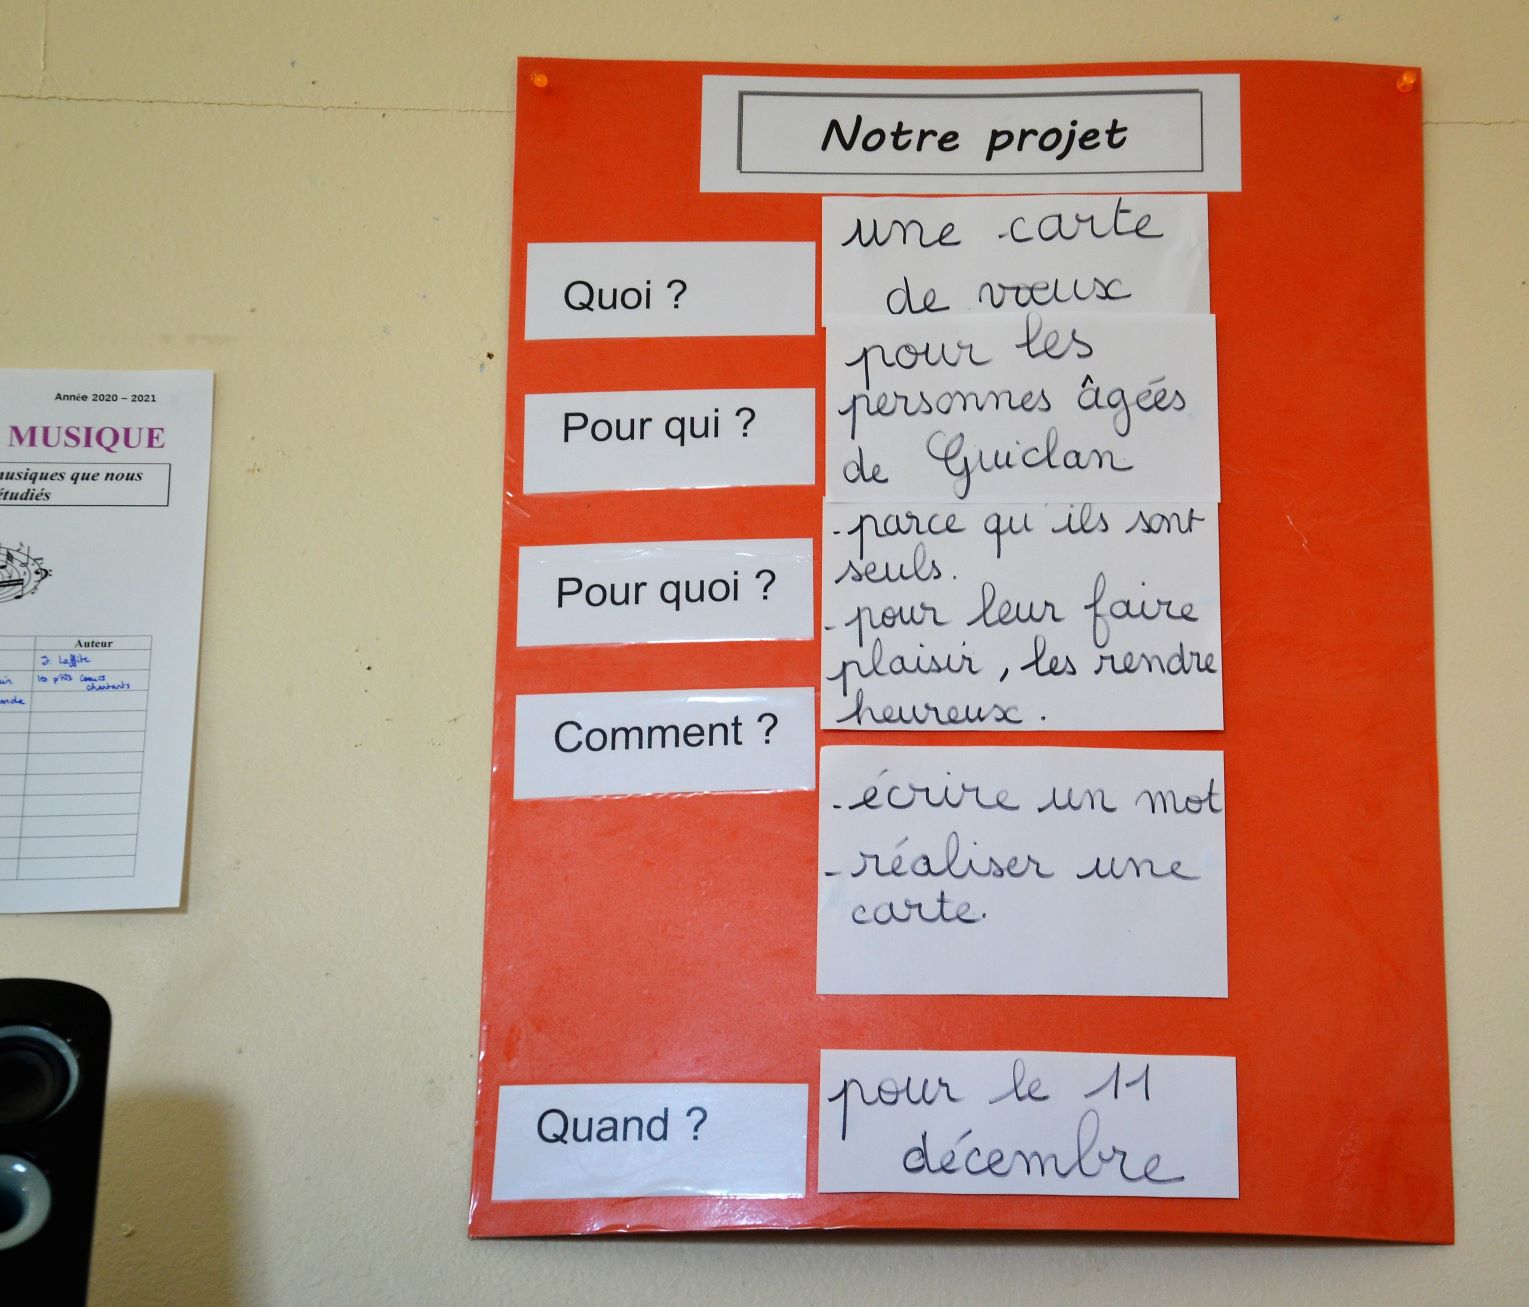 Notre projet
Quoi ?
une carte
de vœux
Pour qui ?
pour les
personnes âgées
de Guiclan
Pour quoi ?
- parce qu'ils sont
seuls.
- pour leur faire
plaisir, les rendre
heureux.
Comment ?
- écrire un mot
- réaliser une
carte.
Quand ?
pour le 11
décembre
Année 2020 – 2021
MUSIQUE
musiques que nous
étudiés
Auteur
J. Laffite
les p'tits cœurs
chantants